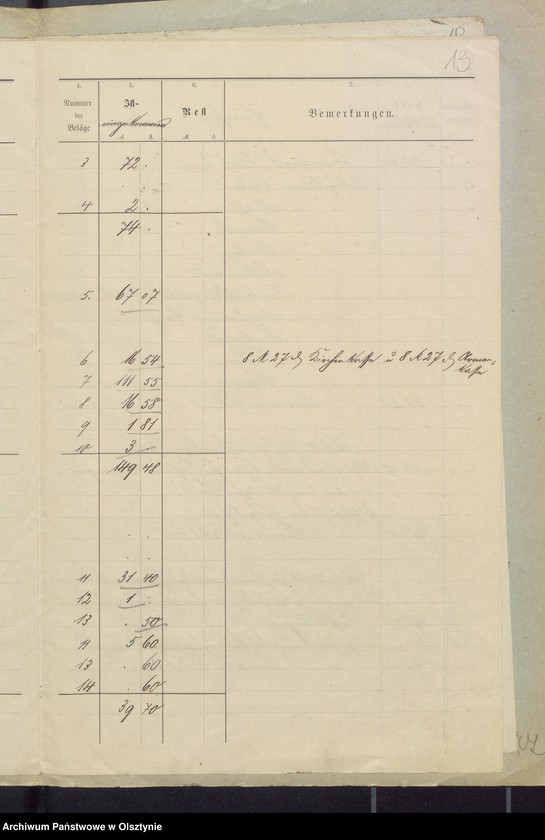 13
4. 5. 6. 7.
Nummer der Beläge Ist- eingekommen Rest Bemerkungen.
3 72 .
4 2 .
74 .
5. 67 07
6 16 54 8 M 27 ₰ Kirchen Kasse u 8 M 27 ₰ Armen-
Kasse
7 111 55
8 16 58
9 1 81
10 3 -
149 48
11 31 40
12 1 .
13 . 50
11 5 60
13 . 60
14 . 60
39 70
Archiwum Państwowe w Olsztynie